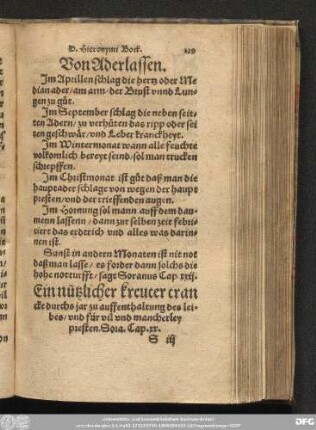 D. Hieronymi Bock. 139
Von Aderlassen.
Im Aprillen schlag die hertz oder Me
dian ader/am arm/der Brust vnnd Lun-
gen zu gůt.
Im September schlag die neben seit-
ten Adern/zu verhüten das ripp oder sei
ten geschwär/vnd Leber kranckheyt.
Im Wintermonat wann alle feuchte
volkomlich bereyt seind/sol man trucken
schrepffen.
Im Christmonat ist gůt daß man die
hauptader schlage von wegen der haupt
presten/vnd der trieffenden augen.
Im Hornung sol mann auff dem dau-
menn lassenn/dann zur selben zeit febri-
siert das erdtrich vnd alles was darin-
nen ist.
Sunst in andern Monaten ist nit not
daß man lasse/es forder dann solchs die
hohe notturfft/sagt Soranus Cap. xxij.
Ein nützlicher kreuter tran
ck durchs jar zu auffenthaltung des lei-
bes/vnd für vil vnd mancherley
presten. Sora. Cap. xx.
S iij
DFG